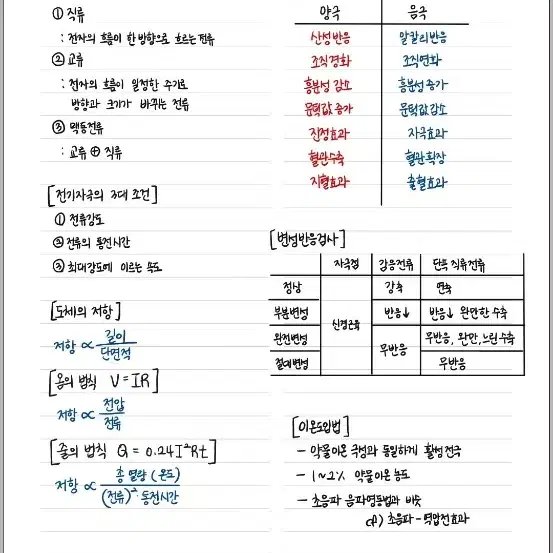 ① 직류
: 전자의 흐름이 한 방향으로 흐르는 전류
② 교류
: 전자의 흐름이 일정한 주기로
방향과 크기가 바뀌는 전류
③ 맥동전류
: 교류 ⊕ 직류
[전기자극의 3대 조건]
① 전류강도
② 전류의 통전시간
③ 최대강도에 이르는 속도
[도체의 저항]
저항 ∝ 길이
단면적
[옴의 법칙 V=IR]
저항 ∝ 전압
전류
[줄의 법칙 Q = 0.24I²Rt]
저항 ∝ 총 열량 (온도)
(전류)² 통전시간
양극 음극
산성 반응 알칼리반응
조직경화 조직연화
흥분성 감소 흥분성 증가
문턱값 증가 문턱값 감소
진정효과 자극효과
혈관수축 혈관확장
지혈효과 출혈효과
[변성반응검사]
자극점 감응전류 단속 직류전류
정상 신경근육 강축 연축
부분변성 반응↓ 반응↓ 완만한 수축
완전변성 무반응 무반응, 완만, 느린 수축
절대변성 무반응
[이온도입법]
- 약물이온 극성과 동일하게 활성전극
- 1~2% 약물이온 농도
- 초음파 음파영동법과 비슷
cf) 초음파 - 역압전효과